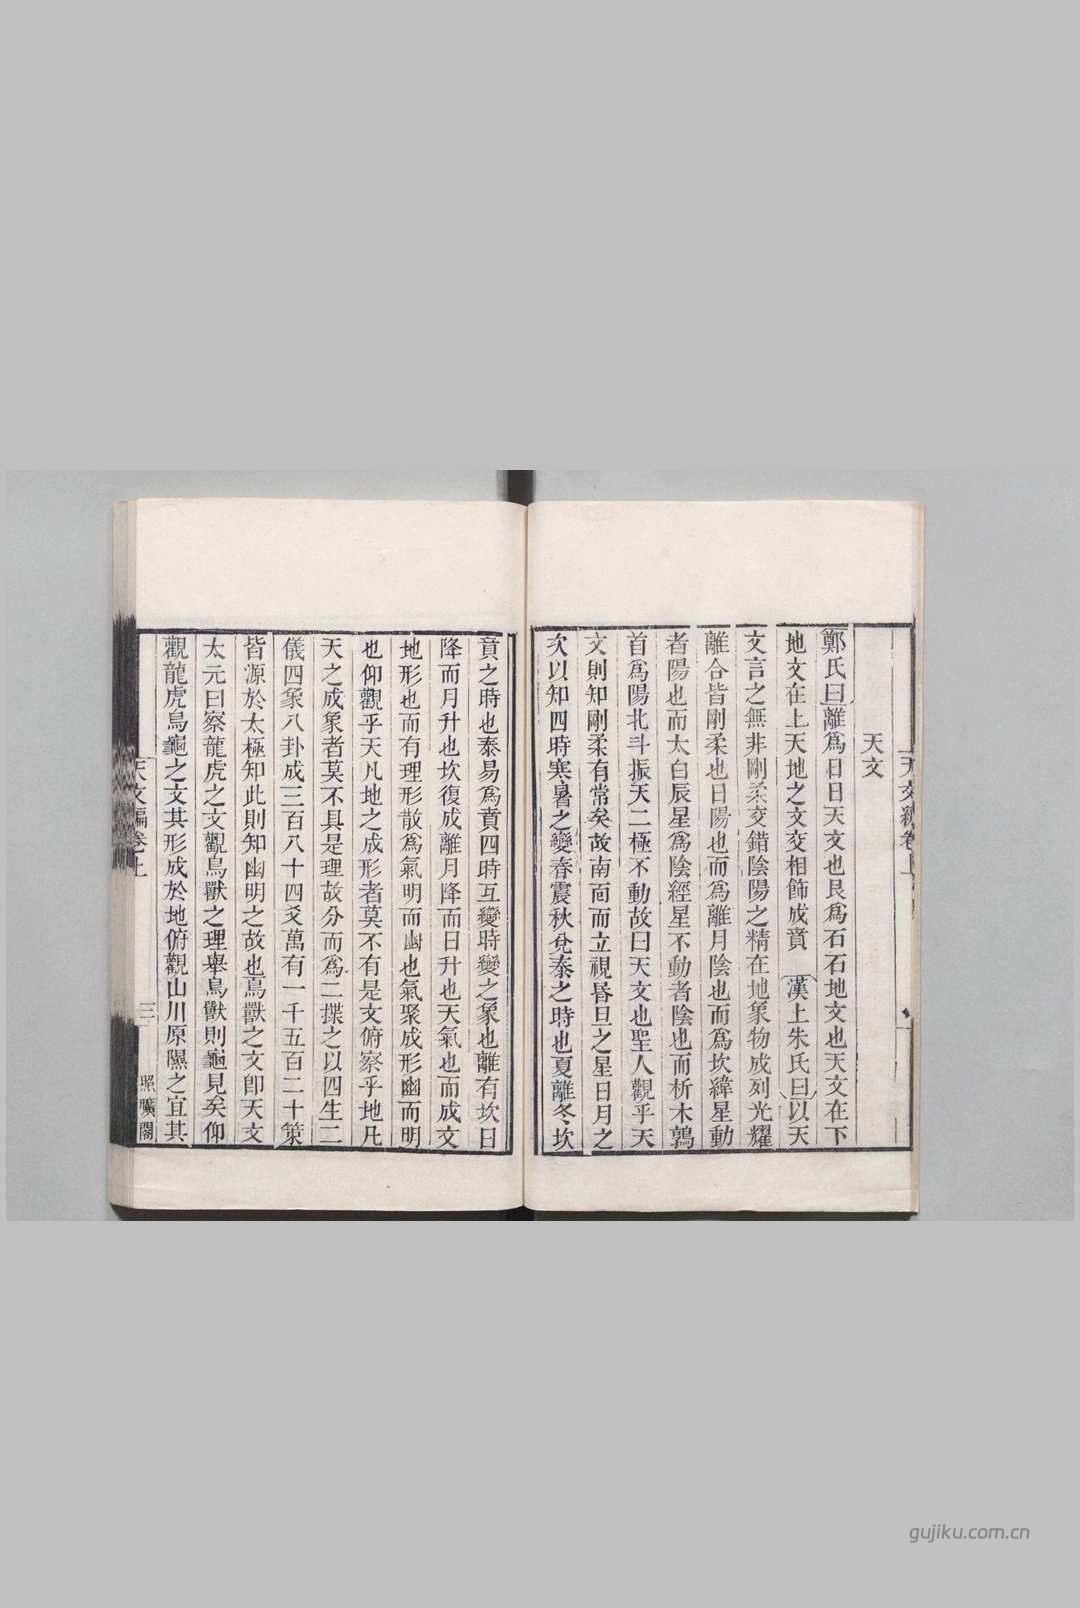 天文
鄭氏曰離爲日日天文也艮爲石石地文也天文在下
地文在上天地之文交相飾成賁 漢上朱氏曰以天
文言之無非剛柔交錯陰陽之精在地象物成列光耀
離合皆剛柔也日陽也而爲離月陰也而爲坎緯星動
者陽也而太白辰星爲陰經星不動者陰也而析木鶉
首爲陽北斗振天二極不動故曰天文也聖人觀乎天
文則知剛柔有常矣故南面而立視昬旦之星日月之
次以知四時寒暑之變春震秋兌泰之時也夏離冬坎
賁之時也泰易爲賁四時互變時變之象也離有坎日
降而月升也坎復成離月降而日升也天氣也而成文
地形也而有理形散爲氣明而幽也氣聚成形幽而明
也仰觀乎天凡地之成形者莫不有是文俯察乎地凡
天之成象者莫不具是理故分而爲二揲之以四生二
儀四象八卦成三百八十四爻萬有一千五百二十策
皆源於太極知此則知幽明之故也鳥獸之文卽天文
太元曰察龍虎之文觀鳥獸之理舉鳥獸則龜見矣仰
觀龍虎鳥龜之文其形成於地俯觀山川原隰之宜其
天文編卷上 三 照曠閣
gujiku.com.cn